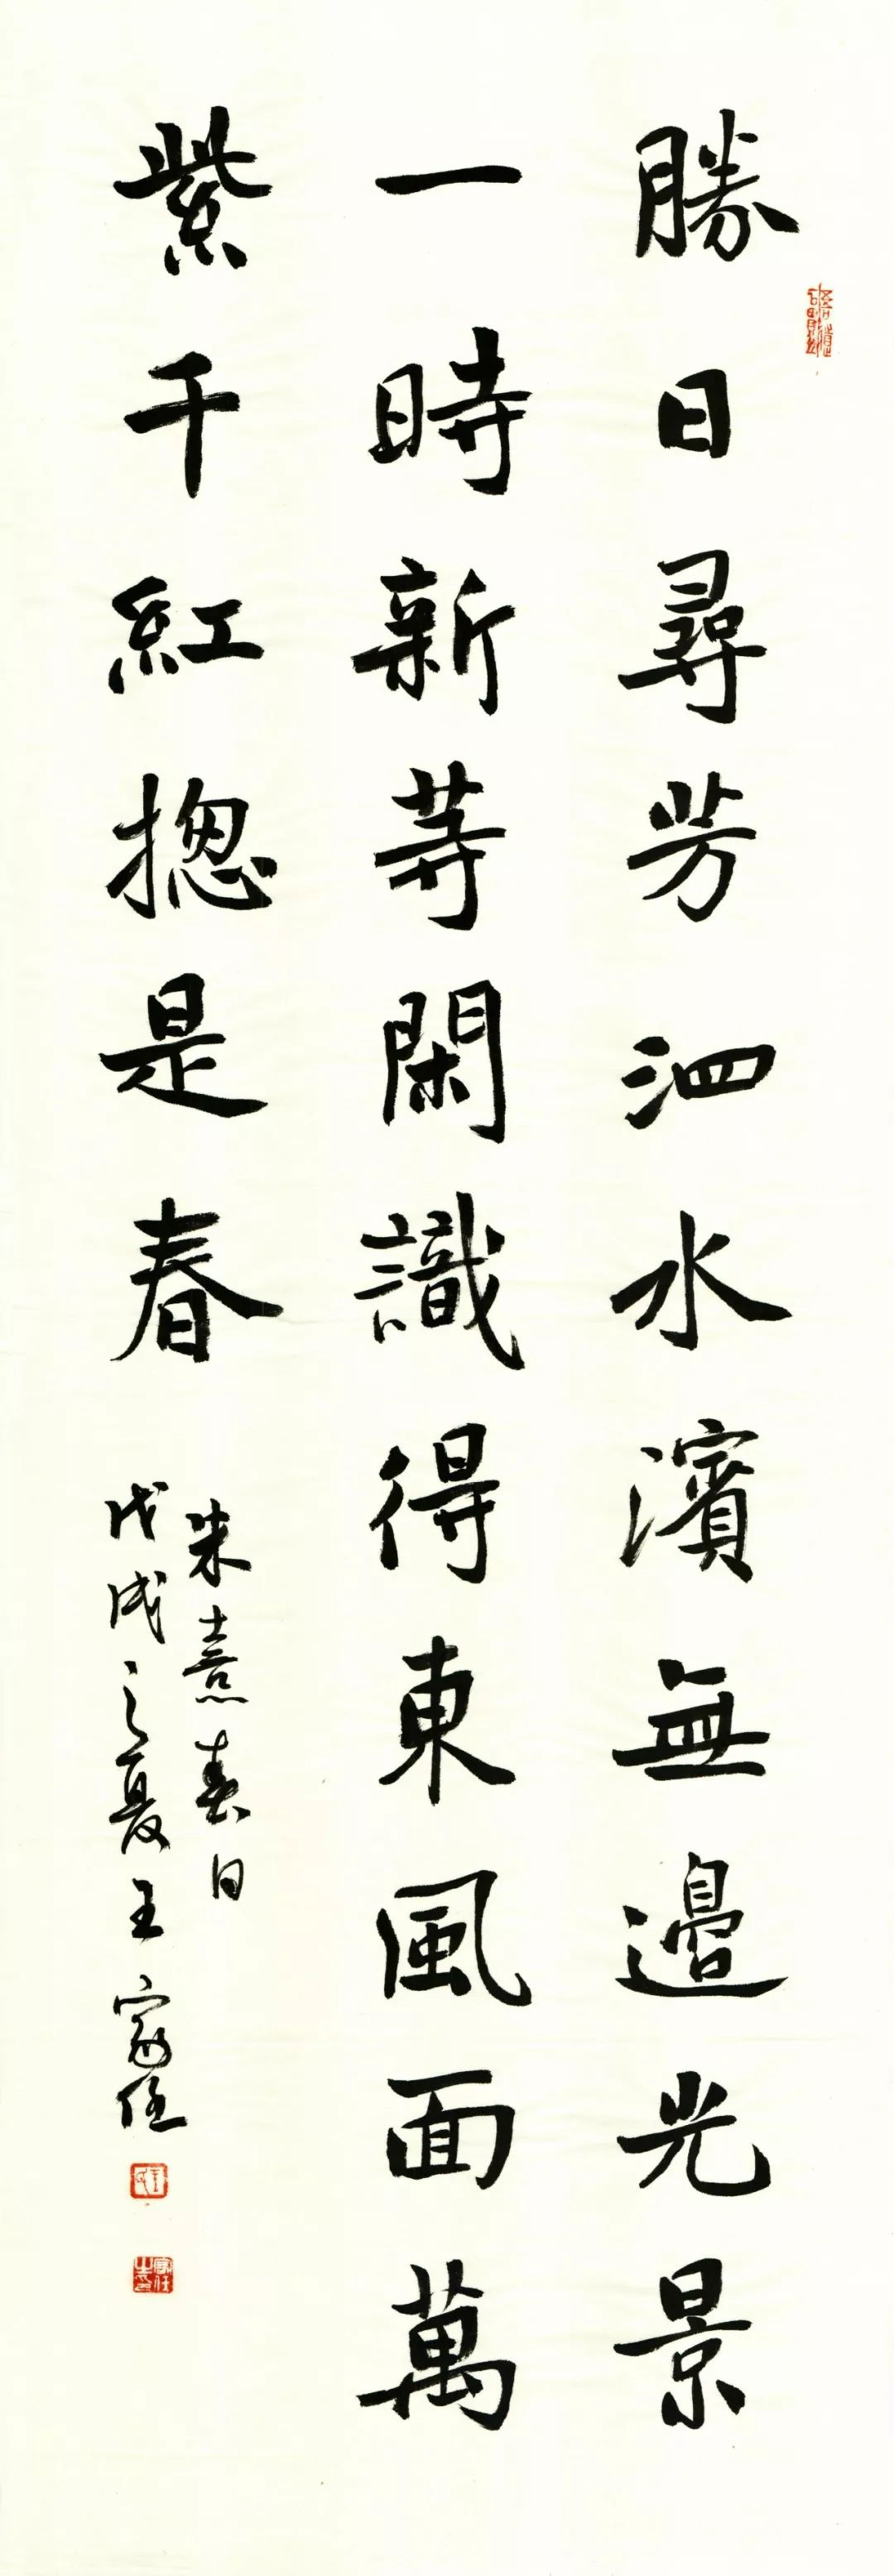 勝日尋芳泗水濱無邊光景
一時新荨閑識得東風面萬
紫千紅揔是春
朱熹春日
戊戌之夏王家任